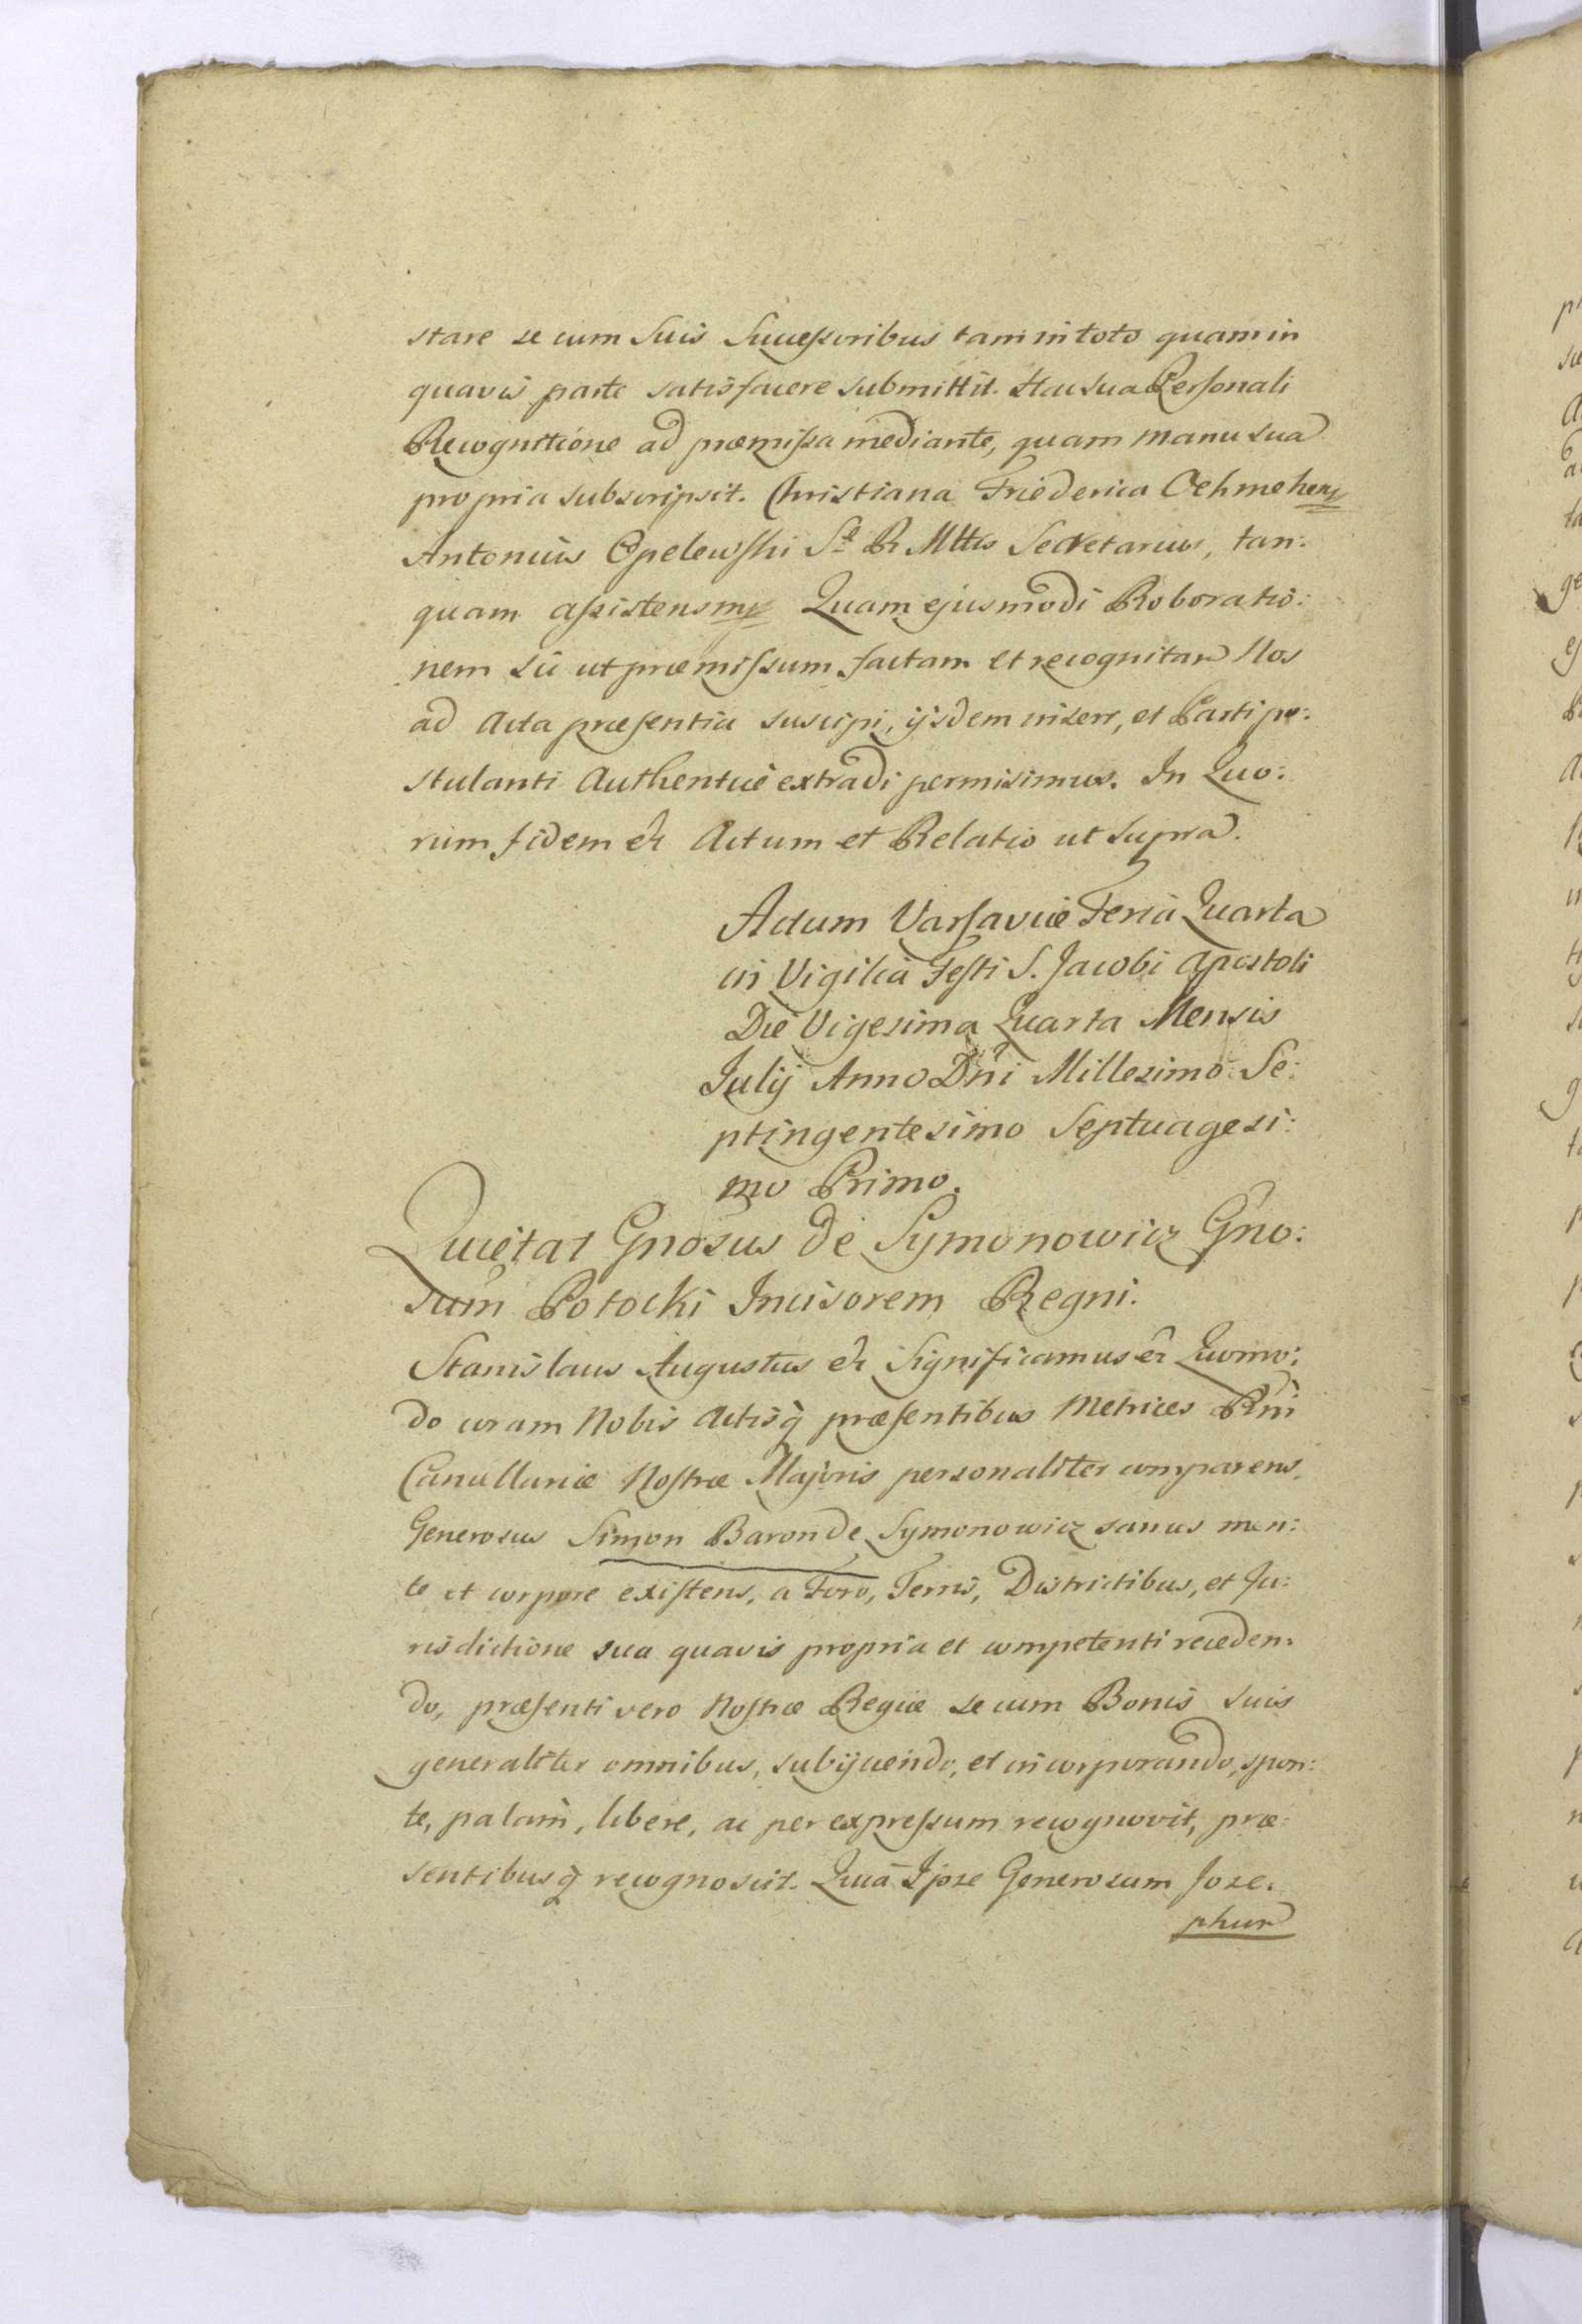 stare se cum Suis Succeſsoribus tam in toto quam in
quavis parte satisfacere submittit. Hac sua Perſonali
Recognitione ad præmiſsa mediante, quam manu sua
propria subscripsit. Christiana Friederica Oehmehen
Antonius Opelewſki S: R Mttis Secretarius, tan:
quam aſsistens mp Quam ejusmodi Roboratio:
nem sic ut præmiſsum factam et recognitam Nos
ad Acta præſentia suscipi, ijsdem inseri, et Parti po:
stulanti Authentice extradi permisimus. In Quo:
rum fidem etc Actum et Relatio ut supra.
Actum Varſaviæ Feria Quarta
in Vigilia Feſti S. Jacobi Apostoli
Die Vigesima Quarta Mensis
Julij Anno Dni Millesimo Se:
ptingentesimo Septuagesi:
mo Primo.
Quietat Gnosus de Symonowicz Gno:
sum Potocki Incisorem Regni.
Stanislaus Augustus etc Significamus etc Quomo:
do coram Nobis Actisq præſentibus Metrices Rni
Cancellariæ Noſtræ Majoris personaliter comparens,
Generosus Simon Baron de Symonowicz sanus men:
te et corpore exiſtens, a Foro, Terris, Districtibus, et Ju:
risdictione sua quavis propria et competenti receden:
do, præſenti vero Noſtræ Regiæ se cum Bonis suis
generaliter omnibus, subijciendo, et incorporando, spon:
te, palam, libere, ac per expreſsum recognovit, præ:
sentibusq recognoscit. Quia Ipse Generosum Jose:
phum